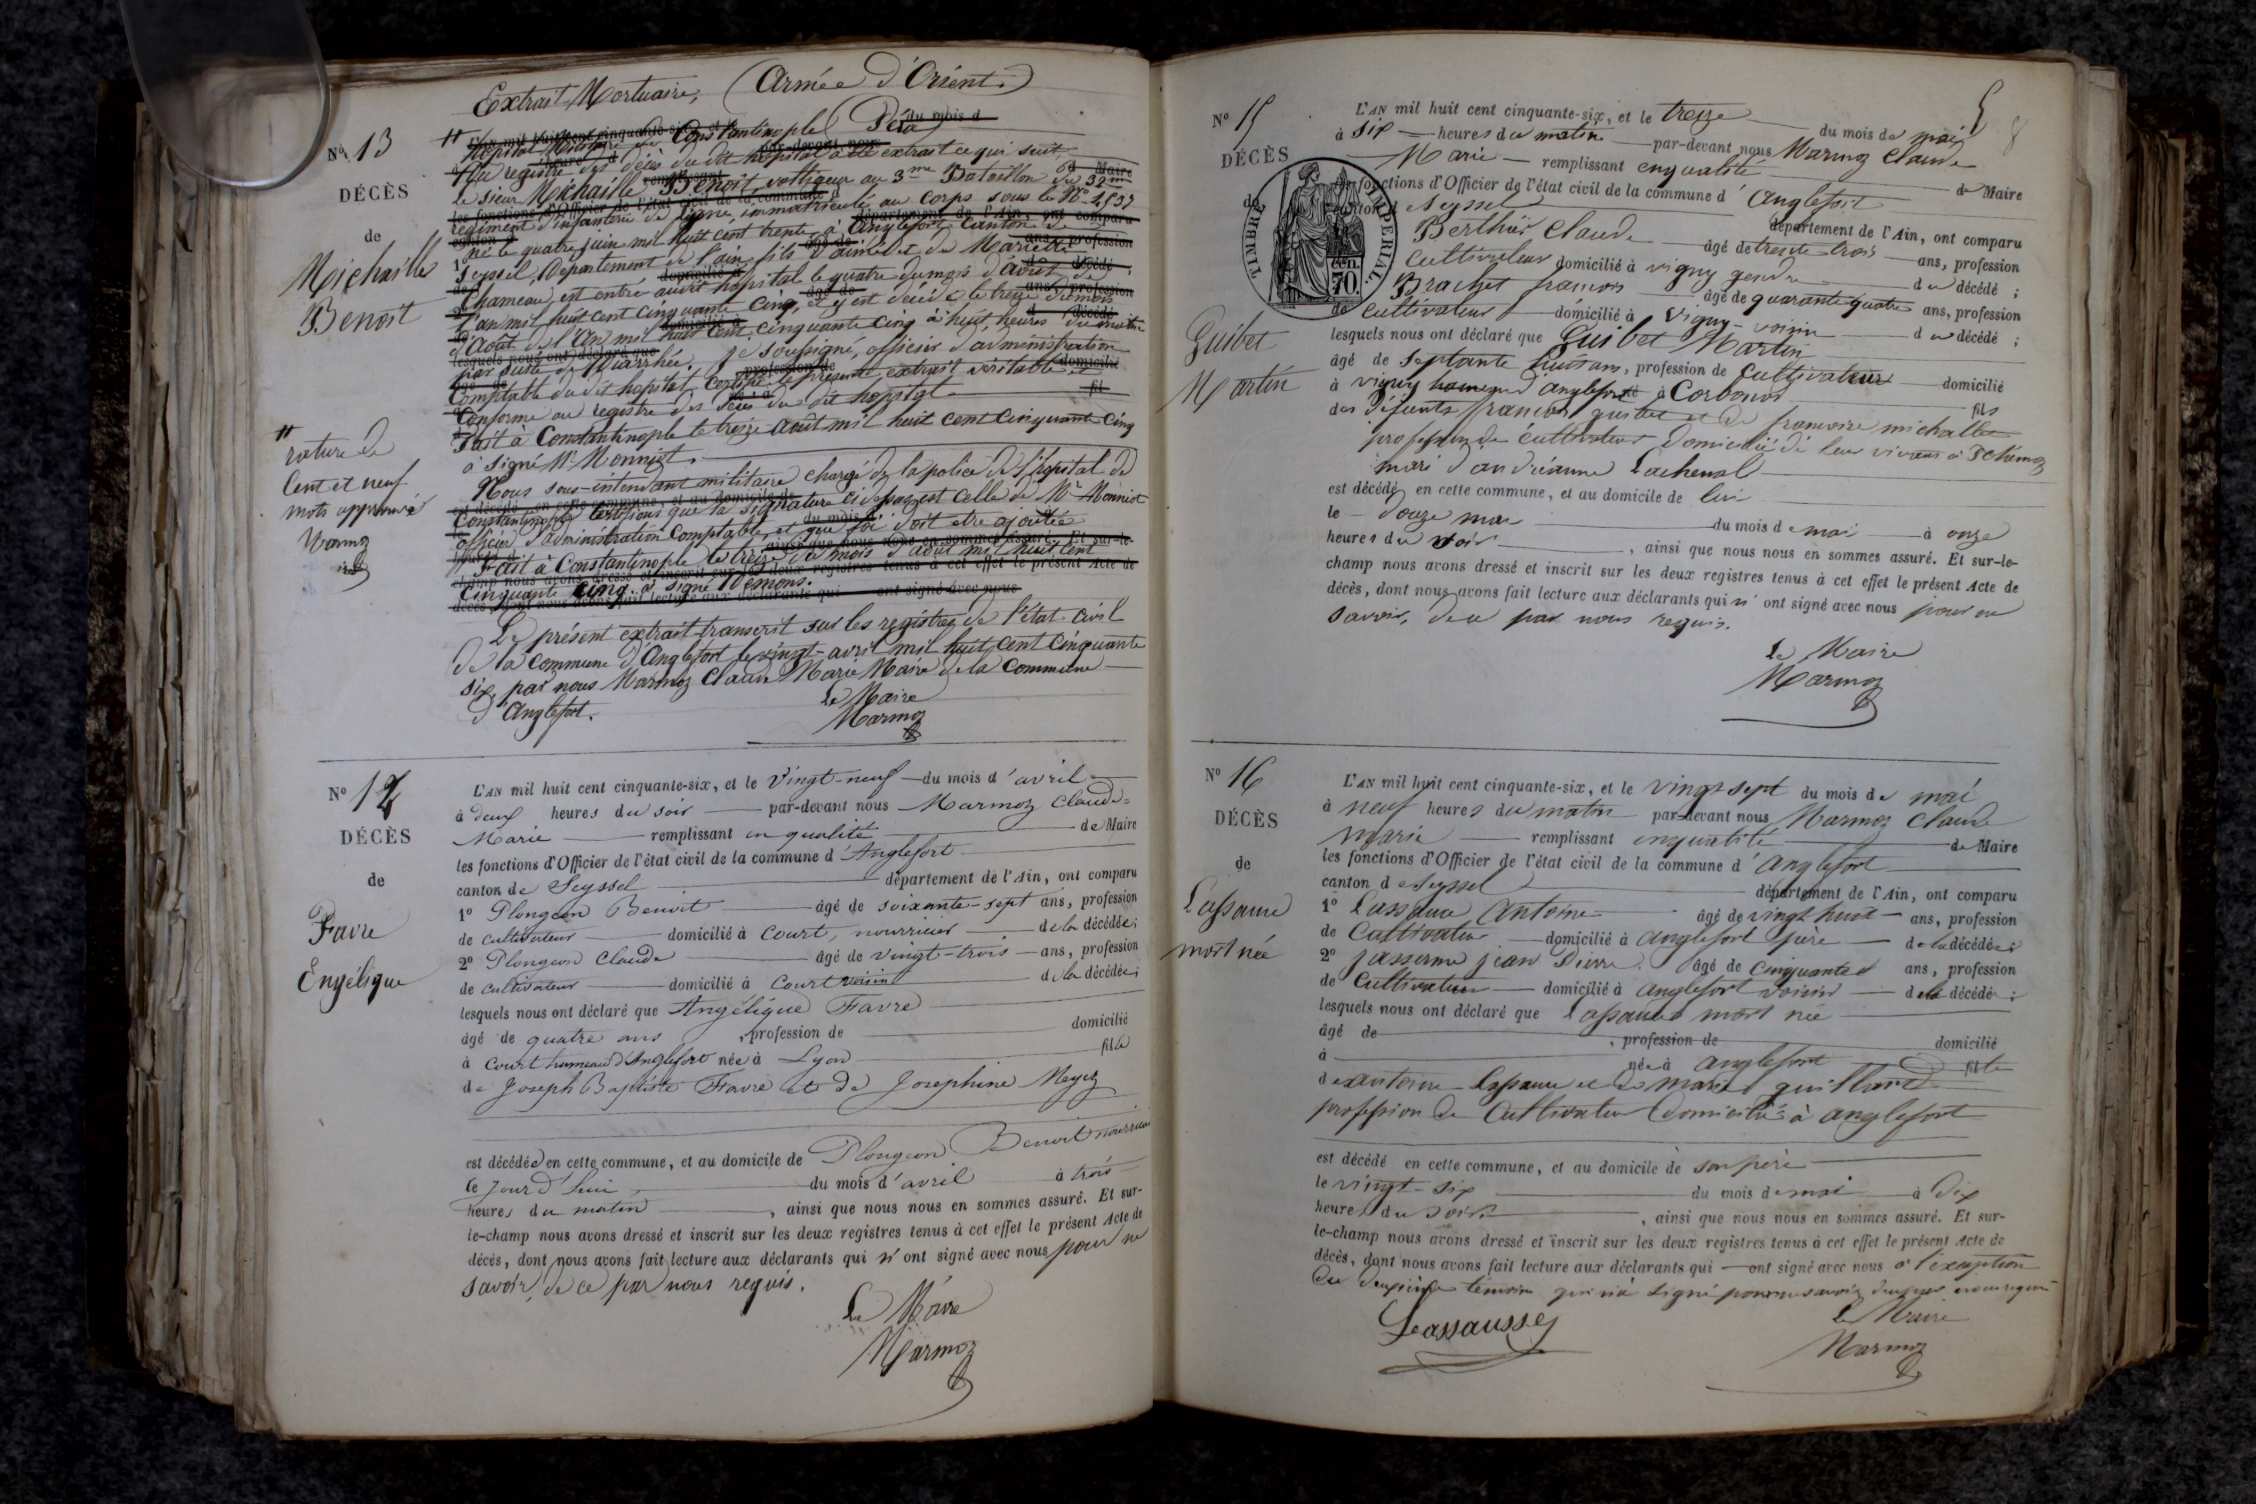 Extrait Mortuaire, (Armée d'Orient.)
Nº 13
DÉCÈS
de
Michaille
Benoit
hôpital Militaire de Constantinople (Péra)
du registre des décès du dit hôpital a été extrait ce qui suit,
le sieur Michaille Benoit, voltigeur au 3me Bataillon du 52me
régiment d'infanterie de ligne, immatriculé au corps sous le Nº
né le quatre juin mil huit cent trente, à Anglefort, Canton de
Seyssel, Département de l'ain, fils d'aimé et de Mariette
Chameau, est entré audit hôpital le quatre du mois d'Août de
l'an mil huit cent cinquante cinq, et y est décédé le treize du mois
d'Août de l'An mil huit cent cinquante cinq à huit heures du matin
par suite de Diarrhée. je soussigné, officier d'administration
Comptable du dit hopital, certifie le présent extrait véritable et
Conforme au registre des décès du dit hopital.
Fait à Constantinople le treize Août mil huit cent cinquante Cinq
a signé Mr Monniot.
Nous sous-intendant militaire chargé de la police de l'hôpital de
Constantinople certifions que la signature ci dessus est celle de Mr Monniot
officier d'administration Comptable, et que foi doit etre ajoutée
Fait à Constantinople le treize du mois d'août mil huit cent
Cinquante cinq. a signé Demons.
Le présent extrait transcrit sur les registres de l'état-civil
de la Commune d'Anglefort le vingt-avril mil huit cent cinquante
six, par nous Marmoz Claude Marie Maire de la Commune
d'Anglefort.
Le Maire
Marmoz
rature de
Cent et neuf
mots approuvés
Marmoz
Nº 14
DÉCÈS
de
Favre
Engélique
L'AN mil huit cent cinquante-six, et le Vingt-neuf du mois d'avril
à deux heures du soir par-devant nous Marmoz Claude-
Marie remplissant en qualité de Maire
les fonctions d'Officier de l'état civil de la commune d'Anglefort
canton de Seyssel département de l'Ain, ont comparu
1º Plongeon Benoit âgé de soixante-sept ans, profession
de cultivateur domicilié à Court, nourricier de la décédée;
2º Plongeon Claude âgé de vingt-trois ans, profession
de cultivateur domicilié à Court voisin de la décédée;
lesquels nous ont déclaré que Angélique Favre
âgé de quatre ans, profession de domicilié
à Court hameau d'Anglefort née à Lyon fille
de Joseph Baptiste Favre et de Josephine
est décédée en cette commune, et au domicile de Plongeon Benoit nourricier
le jour d'hui du mois d'avril à trois
heures du matin, ainsi que nous nous en sommes assuré. Et sur-
le-champ nous avons dressé et inscrit sur les deux registres tenus à cet effet le présent Acte de
décès, dont nous avons fait lecture aux déclarants qui n'ont signé avec nous pour ne
savoir, de ce par nous requis.
Le Maire
Marmoz
8
Nº 15
DÉCÈS
de
TIMBRE IMPÉRIAL
70 cen.
Guibet
Martin
L'AN mil huit cent cinquante-six, et le treize du mois de mai
à six heures du matin par-devant nous Marmoz Claude
Marie remplissant en qualité de Maire
les fonctions d'Officier de l'état civil de la commune d'Anglefort
canton de Seyssel département de l'Ain, ont comparu
Berthier Claude âgé de trente trois ans, profession
Cultivateur domicilié à vigny gendre du décédé;
Brachet francois âgé de quarante quatre ans, profession
de Cultivateur domicilié à Vigny-voisin du décédé;
lesquels nous ont déclaré que Guibet Martin
âgé de septante huit ans, profession de Cultivateur domicilié
à vigny hameau d'anglefort né à Corbonod fils
des défunts francois guibet et de francoise michallet
profession de cultivateur domicilié de leur vivant à
mari d'andréanne Lachenal
est décédé en cette commune, et au domicile de lui
le douze mai du mois de mai à onze
heures du soir, ainsi que nous nous en sommes assuré. Et sur-le-
champ nous avons dressé et inscrit sur les deux registres tenus à cet effet le présent Acte de
décès, dont nous avons fait lecture aux déclarants qui n'ont signé avec nous pour ne
savoir, de ce par nous requis.
Le Maire
Marmoz
Nº 16
DÉCÈS
de
Lassause
mort née
L'AN mil huit cent cinquante-six, et le vingt sept du mois de mai
à neuf heures du matin par-devant nous Marmoz Claude
marie remplissant en qualité de Maire
les fonctions d'Officier de l'état civil de la commune d'anglefort
canton de Seyssel département de l'Ain, ont comparu
1º Lassause Antoine âgé de vingt huit ans, profession
de Cultivateur domicilié à anglefort père de la décédée;
2º jasserme jean Pierre âgé de cinquante ans, profession
de Cultivateur domicilié à anglefort voisin de la décédé;
lesquels nous ont déclaré que Lassause mort née
âgé de, profession de domicilié
à née à anglefort fille
de antoine Lassause et de marie guilland
profession de Cultivateur domiciliés à anglefort
est décédé en cette commune, et au domicile de son père
le vingt-six du mois de mai à dix
heures du soir, ainsi que nous nous en sommes assuré. Et sur-
le-champ nous avons dressé et inscrit sur les deux registres tenus à cet effet le présent Acte de
décès, dont nous avons fait lecture aux déclarants qui ont signé avec nous à l'exception
du deuxième témoin qui n'a signé pour ne savoir
Le Maire
Lassausse
Marmoz